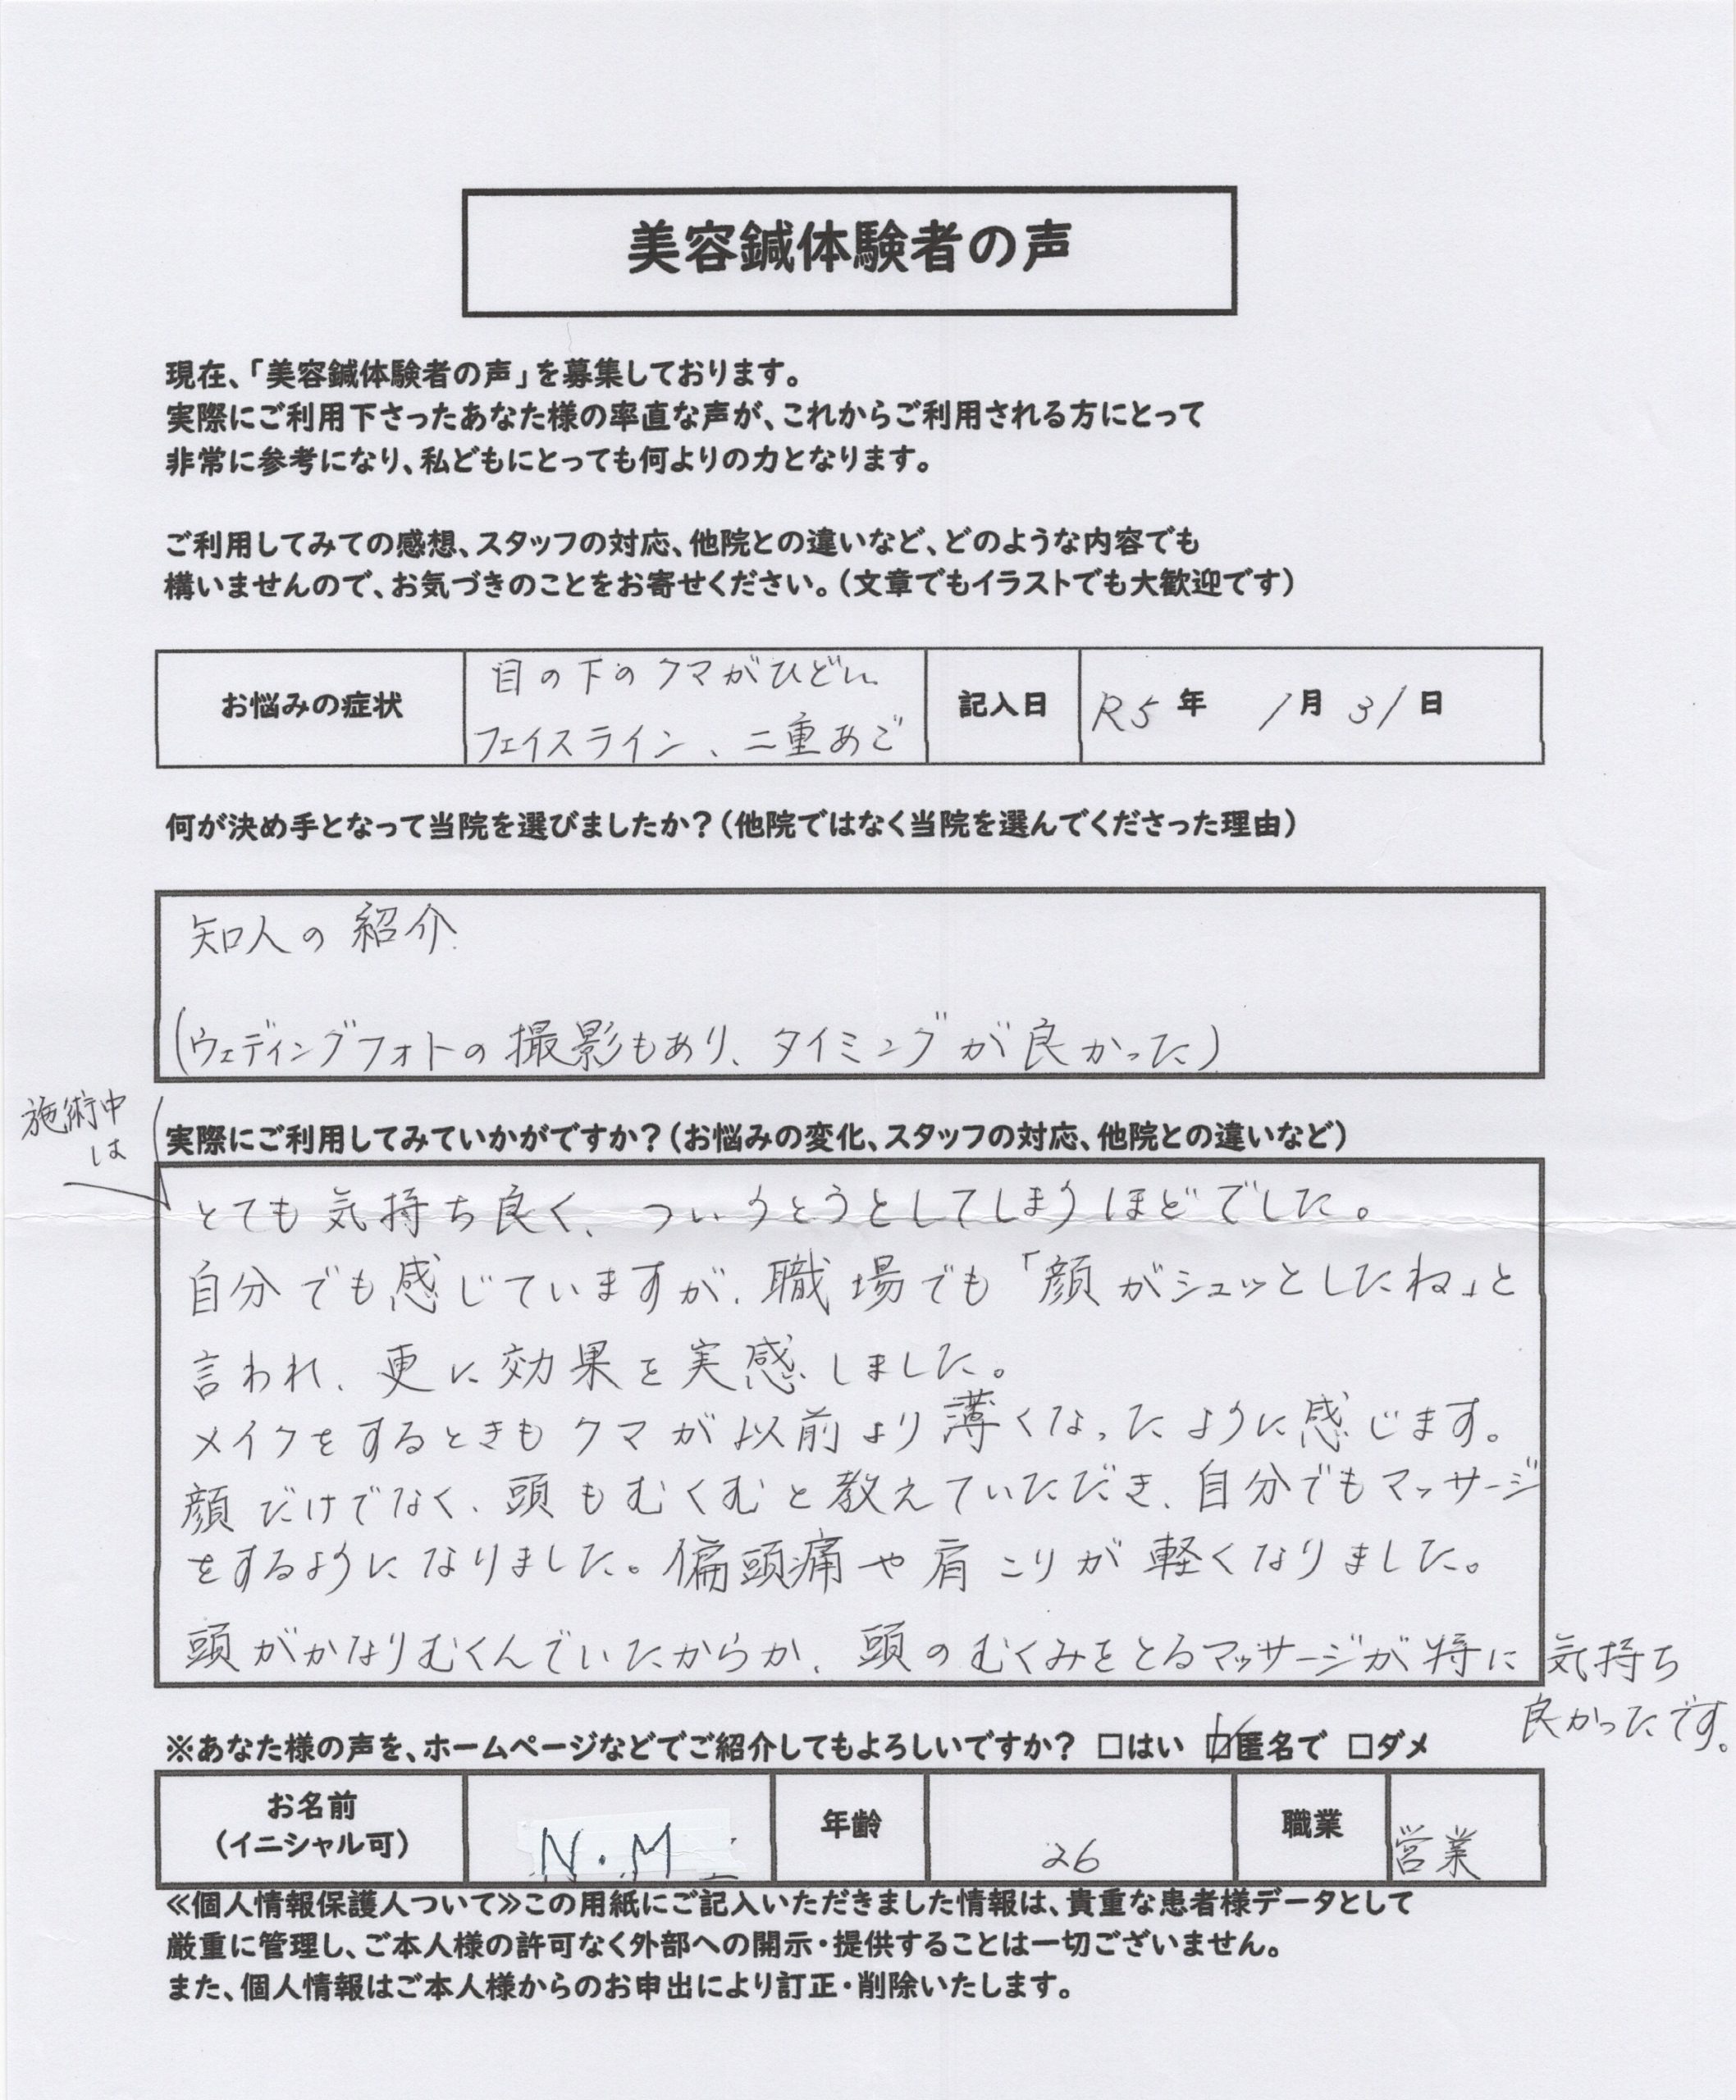 美容鍼体験者の声
現在、「美容鍼体験者の声」を募集しております。
実際にご利用下さったあなた様の率直な声が、これからご利用される方にとって
非常に参考になり、私どもにとっても何よりの力となります。
ご利用してみての感想、スタッフの対応、他院との違いなど、どのような内容でも
構いませんので、お気づきのことをお寄せください。（文章でもイラストでも大歓迎です）
お悩みの症状
目の下のクマがひどい
フェイスライン、二重あご
記入日
R5 年 1月 31日
何が決め手となって当院を選びましたか？（他院ではなく当院を選んでくださった理由）
知人の紹介
（ウェディングフォトの撮影もあり、タイミングが良かった）
実際にご利用してみていかがですか？（お悩みの変化、スタッフの対応、他院との違いなど）
施術中
は
とても気持ち良く、ついうとうとしてしまうほどでした。
自分でも感じていますが、職場でも「顔がシュッとしたね」と
言われ、更に効果を実感しました。
メイクをするときもクマが以前より薄くなったように感じます。
顔だけでなく、頭もむくむと教えていただき、自分でもマッサージ
をするようになりました。偏頭痛や肩こりが軽くなりました。
頭がかなりむくんでいたからか、頭のむくみをとるマッサージが特に気持ち
良かったです。
※あなた様の声を、ホームページなどでご紹介してもよろしいですか？ □はい ☑匿名で □ダメ
お名前
（イニシャル可）
N.M
年齢
26
職業
営業
≪個人情報保護人ついて≫この用紙にご記入いただきました情報は、貴重な患者様データとして
厳重に管理し、ご本人様の許可なく外部への開示・提供することは一切ございません。
また、個人情報はご本人様からのお申出により訂正・削除いたします。